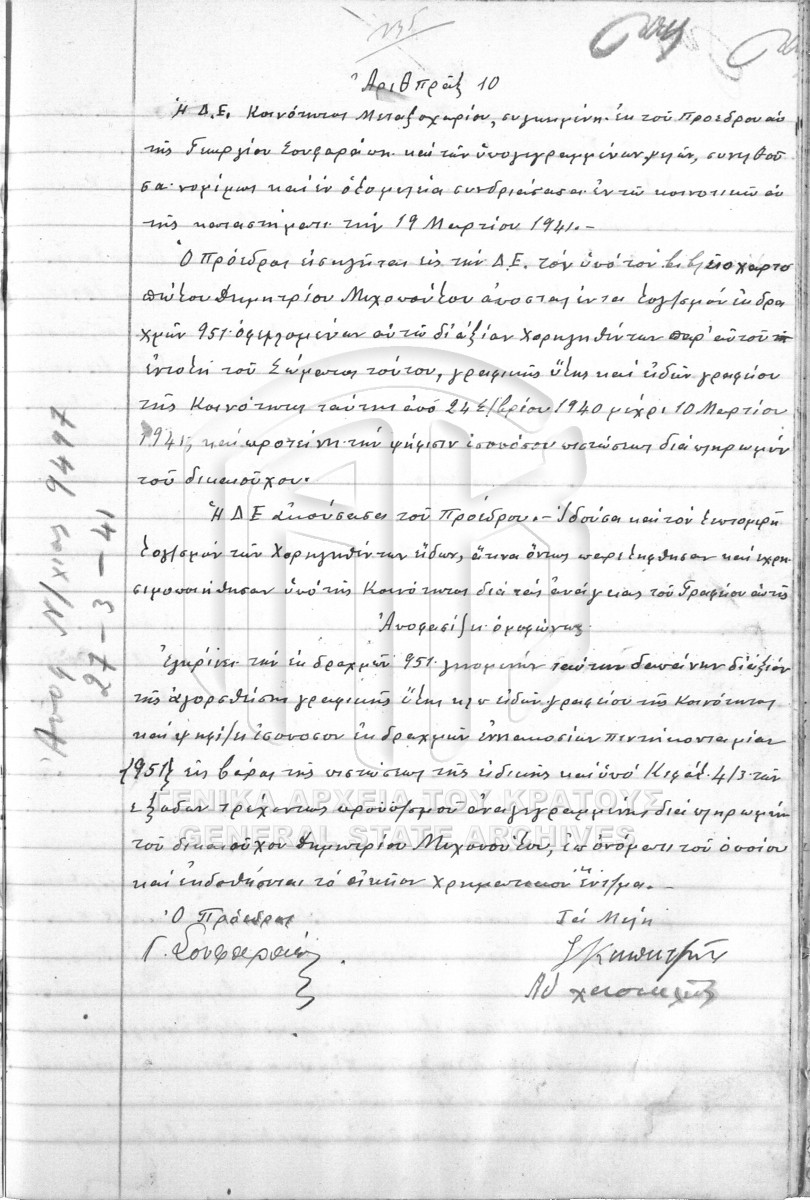 Ἀριθ πράξ 10
Ἡ Δ.Ε. Κοινότητος Μεταξοχωρίου, συγκειμένη ἐκ τοῦ Προέδρου αὐ
τῆς Γεωργίου Σουφαράπη καὶ τῶν ὑπογεγραμμένων μελῶν, συνελθοῦ
σα νομίμως καὶ ἐν ὁλομελείᾳ συνεδριάσασα ἐν τῷ κοινοτικῷ αὐ
τῆς καταστήματι τὴν 19 Μαρτίου 1941.-
Ὁ Πρόεδρος εἰσηγεῖται εἰς τὴν Δ.Ε. τὸν ὑπὸ τοῦ βιβλιοχαρτο
πώλου Δημητρίου Μιχοπούλου ἀποσταλέντα λογ/σμόν ἐκ δρα
χμῶν 951 ὀφειλομένων αὐτῷ δι' ἀξίαν χορηγηθέντων παρ' αὐτοῦ
ἐντολῇ τοῦ Σώματος τούτου, γραφικῆς ὕλης καὶ εἰδῶν γραφείου
τῆς Κοινότητος ταύτης ἀπὸ 24 /βρίου 1940 μέχρι 10 Μαρτίου
1941, καὶ προτείνει τὴν ψήφισιν ἰσοπόσου πιστώσεως διὰ πληρωμὴν
τοῦ δικαιούχου.
Ἡ Δ Ε ἀκούσασα τοῦ Προέδρου.- Ἰδοῦσα καὶ τὸν λεπτομερῆ
λογ/σμόν τῶν χορηγηθέντων εἰδῶν, ἅτινα ὄντως παρελήφθησαν καὶ ἐχρη
σιμοποιήθησαν ὑπὸ τῆς Κοινότητος διὰ τὰς ἀνάγκας τοῦ Γραφείου αὐτῆς
Ἀποφασίζει ὁμοφώνως
Ἐγκρίνει τὴν ἐκ δραχμῶν 951 γενομένην ταύτην δαπάνην δι' ἀξίαν
τῆς ἀγορασθείσης γραφικῆς ὕλης κλπ εἰδῶν γραφείου τῆς Κοινότητος
καὶ ψηφίζει ἰσόποσον ἐκ δραχμῶν ἐννεακοσίων πεντήκοντα μίαν
{951} εἰς βάρος τῆς πιστώσεως τῆς εἰδικῆς καὶ ὑπὸ Κεφάλ. 4/3 τῶν
ἐξόδων τρέχοντος προϋ/σμοῦ ἀναγεγραμμένης διὰ πληρωμὴν
τοῦ δικαιούχου Δημητρίου Μιχοπούλου, ἐπ' ὀνόματι τοῦ ὁποίου
καὶ ἐκδοθήσεται τὸ οἰκεῖον χρηματικὸν ἔντ/μα.-
Ὁ Πρόεδρος
Τὰ Μέλη
Γ. Σουφαράπης
Ἀποφ Ν/χίας 9497
27-3-41
ΓΕΝΙΚΑ ΑΡΧΕΙΑ ΤΟΥ ΚΡΑΤΟΥΣ
GENERAL STATE ARCHIVES